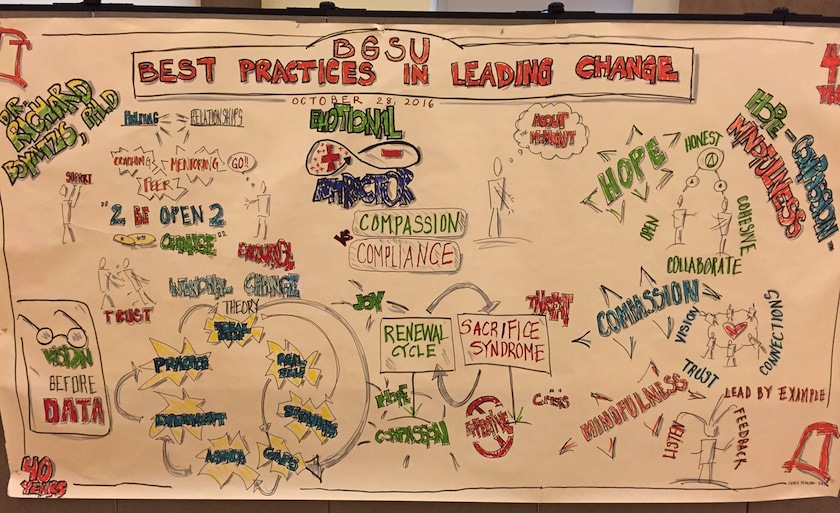 BGSU
BEST PRACTICES IN LEADING CHANGE
OCTOBER 28, 2016
DR. RICHARD
BOYATZIS, PH.D
HELPING = RELATIONSHIPS
COACHING
MENTORING
GO!!
PEER
SUPPORT
"2 BE OPEN 2
CHANGE"
ENCOURAGE
TRUST
INTENTIONAL CHANGE
THEORY
IDEAL
SELF
REAL
SELF
STRENGTHS
GAPS
AGENDA
EXPERIMENT
PRACTICE
VISION
BEFORE
DATA
40
YEARS
EMOTIONAL
+ -
ATTRACTOR
COMPASSION
VS
COMPLIANCE
JOY
THREAT
RENEWAL
CYCLE
SACRIFICE
SYNDROME
HOPE
COMPASSION
CRISIS
HOPE
HONEST
OPEN
COHESIVE
COLLABORATE
COMPASSION
VISION
CONNECTIONS
TRUST
MINDFULNESS
LEAD BY EXAMPLE
LISTEN
FEEDBACK
HOPE - COMPASSION
MINDFULNESS